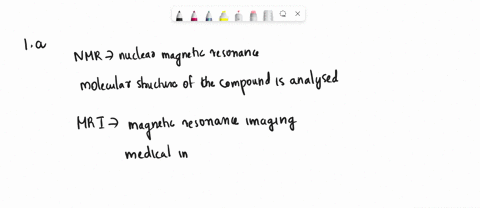 1.a
NMR → nuclear magnetic resonance
molecular structure of the compound is analysed
MRI → magnetic resonance imaging
medical in